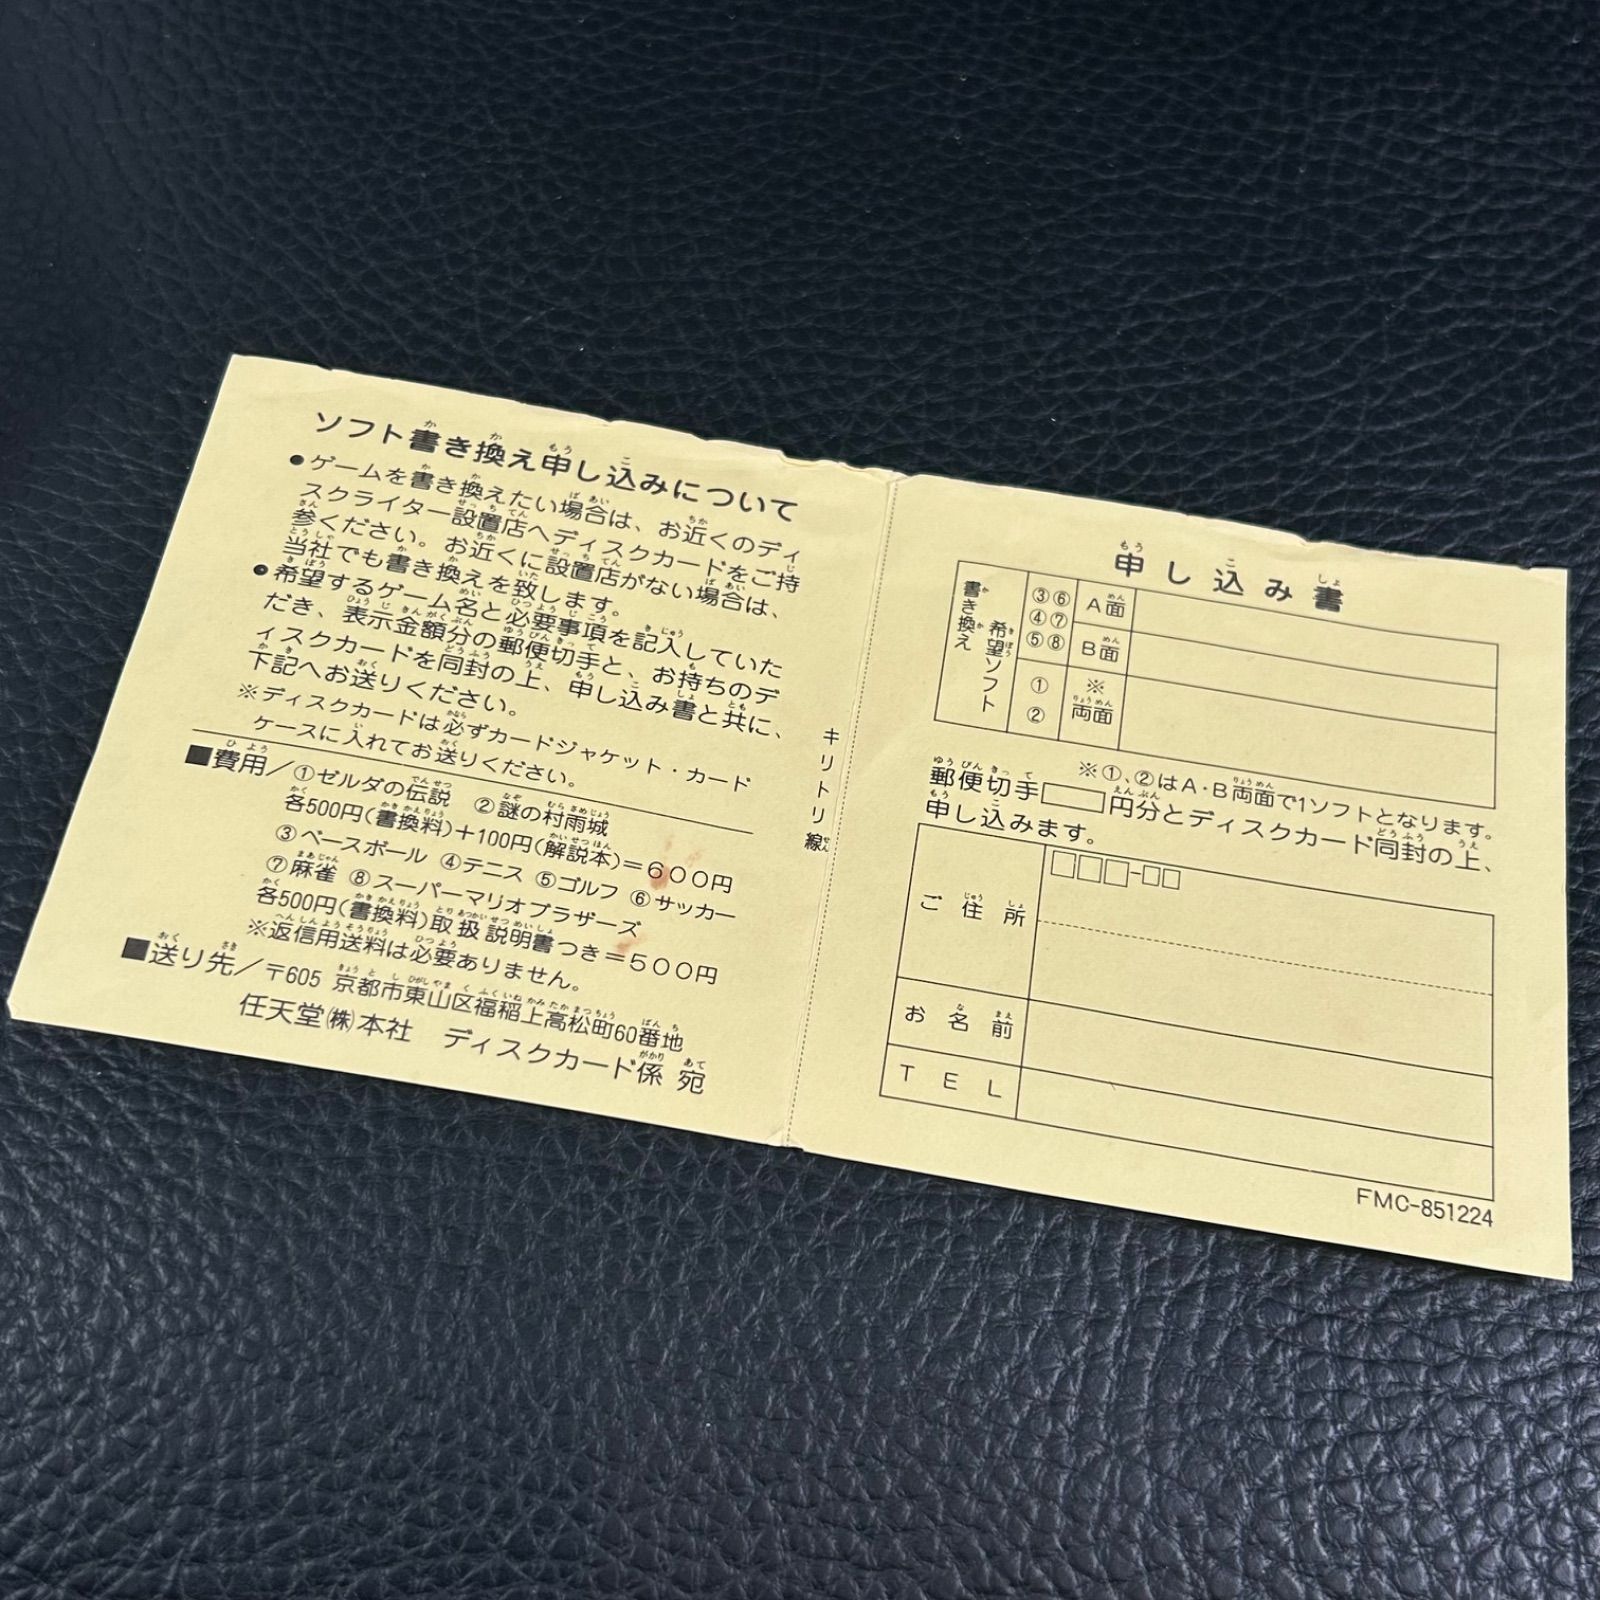 ソフト書き換え申し込みについて
●ゲームを書き換えたい場合は、お近くのディ
スクライター設置店へディスクカードをご持
参ください。お近くに設置店がない場合は、
当社でも書き換えを致します。
●希望するゲーム名と必要事項を記入していた
だき、表示金額分の郵便切手と、お持ちのデ
ィスクカードを同封の上、申し込み書と共に、
下記へお送りください。
※ディスクカードは必ずカードジャケット・カード
ケースに入れてお送りください。
■費用／①ゼルダの伝説 ②謎の村雨城
各500円(書換料)＋100円(解説本)＝600円
③ベースボール ④テニス ⑤ゴルフ ⑥サッカー
⑦麻雀 ⑧スーパーマリオブラザーズ
各500円(書換料)取扱説明書つき＝500円
※返信用送料は必要ありません。
■送り先／〒605 京都市東山区福稲上高松町60番地
任天堂㈱本社 ディスクカード係 宛
キリトリ線
申し込み書
書き換え希望ソフト
③⑥
④⑦
⑤⑧
A面
B面
①
②
※
両面
※①、②はA・B両面で1ソフトとなります。
郵便切手 円分とディスクカード同封の上、
申し込みます。
ご住所
□□□-□□
お名前
TEL
FMC-851224